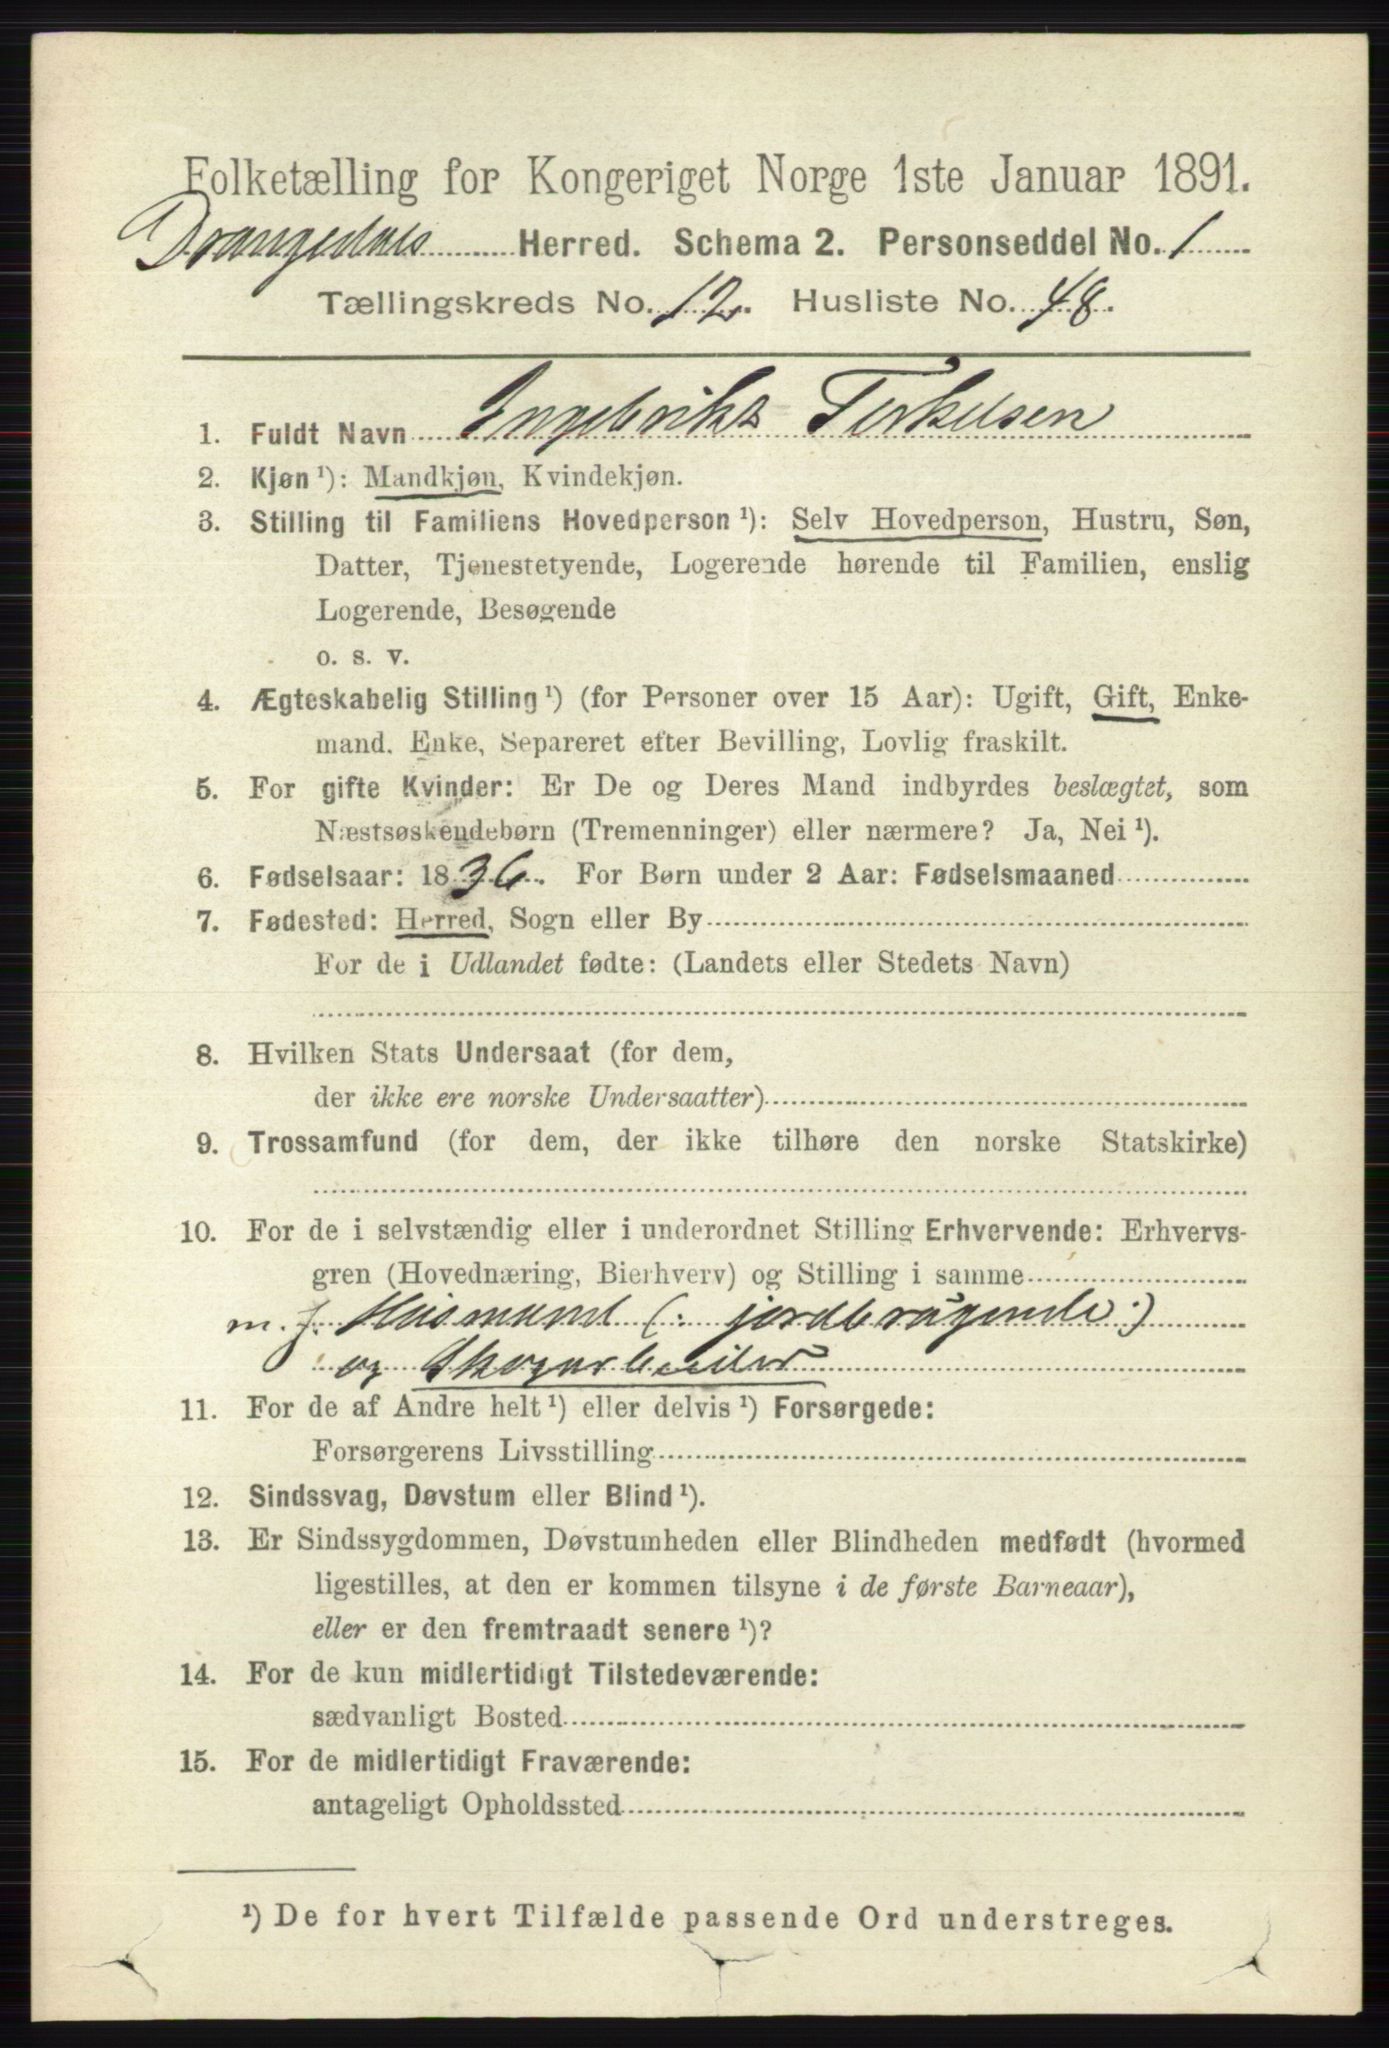 Folketælling for Kongeriget Norge 1ste Januar 1891.
Drangedals Herred. Schema 2. Personseddel No. 1
Tællingskreds No. 12. Husliste No. 48.
1. Fuldt Navn Ingebrikt Terkelsen
2. Kjøn ¹): Mandkjøn, Kvindekjøn.
3. Stilling til Familiens Hovedperson ¹): Selv Hovedperson, Hustru, Søn,
Datter, Tjenestetyende, Logerende hørende til Familien, enslig
Logerende, Besøgende
o. s. v.
4. Ægteskabelig Stilling ¹) (for Personer over 15 Aar): Ugift, Gift, Enke-
mand, Enke, Separeret efter Bevilling, Lovlig fraskilt.
5. For gifte Kvinder: Er De og Deres Mand indbyrdes beslægtet, som
Næstsøskendebørn (Tremenninger) eller nærmere? Ja, Nei ¹).
6. Fødselsaar: 1836. For Børn under 2 Aar: Fødselsmaaned
7. Fødested: Herred, Sogn eller By
For de i Udlandet fødte: (Landets eller Stedets Navn)
8. Hvilken Stats Undersaat (for dem,
der ikke ere norske Undersaatter)
9. Trossamfund (for dem, der ikke tilhøre den norske Statskirke)
10. For de i selvstændig eller i underordnet Stilling Erhvervende: Erhvervs-
gren (Hovednæring, Bierhverv) og Stilling i samme
m. j. Husmand (: jordbrugende :)
og Skogarbeider
11. For de af Andre helt ¹) eller delvis ¹) Forsørgede:
Forsørgerens Livsstilling
12. Sindssvag, Døvstum eller Blind ¹).
13. Er Sindssygdommen, Døvstumheden eller Blindheden medfødt (hvormed
ligestilles, at den er kommen tilsyne i de første Barneaar),
eller er den fremtraadt senere ¹)?
14. For de kun midlertidigt Tilstedeværende:
sædvanligt Bosted
15. For de midlertidigt Fraværende:
antageligt Opholdssted
¹) De for hvert Tilfælde passende Ord understreges.